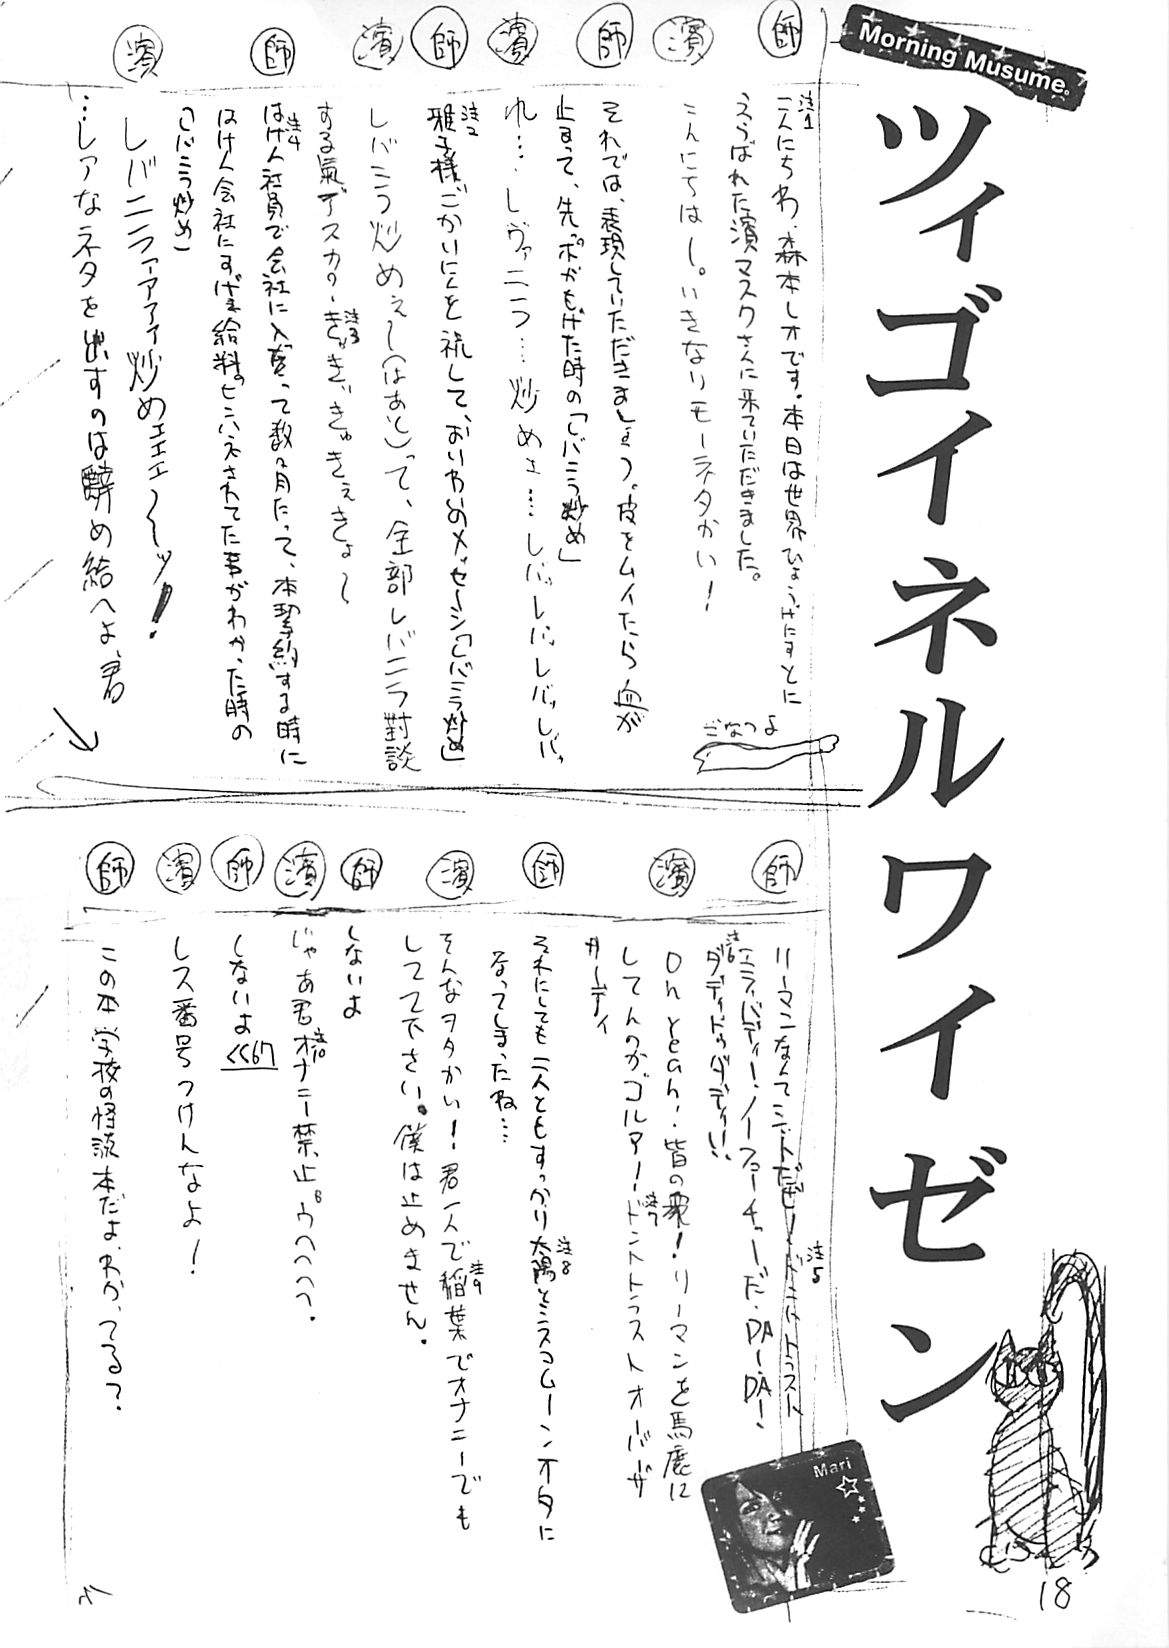 Morning Musume。
ツィゴイネルワイゼン
師
注1
こんにちわ、森本レオです。本日は世界ひょうげにすとに
えらばれた濱マスクさんに来ていただきました。
濱
こんにちはー。いきなりモーネタかい！
師
それでは、表現していただきましょう。皮をムイたら血が
止まって、先ッポがもげた時の「レバニラ炒め」
濱
れ…レヴァニラ…炒めェ…レバッレバッレバッレバッ
師
注2
雅子様ごかいにんを祝して、おいわいのメッセージ「レバニラ炒め」
濱
レバニラ炒めぇ〜(はあと)って、全部レバニラ對談
する氣デスカ
注3
きゃぎゃぎゅきぇきょ〜
師
注4
はけん社員で会社に入って数ヶ月たって、本契約する時に
はけん会社にすげぇ給料のピンハネされてた事がわかった時の
「レバニラ炒め」
濱
レバニラァアアァ炒めェエェ〜〜ッ！
…レアなネタを出すのは辭め給へよ、君
ごなつよ
師
リーマンなんてシットだぜ！ドントトラスト
注5
エヴィバディー・ノーフューチャーだ・DA・DA！
注6
ダディドゥダディ！
濱
Oh yeah！皆の衆！リーマンを馬鹿に
してんのかゴルアー！ドントトラストオーバーサ
注7
ーティ
師
それにしても二人ともすっかり太陽とシスコムーンオタに
注8
なってしまったね…
濱
そんなヲタかい！君一人で稲葉でオナニーでも
注9
してて下さい。僕は止めません。
師
しないよ
濱
じゃあ君オナニー禁止ウヘヘヘ。
注10
師
しないよ <<67
濱
レス番号つけんなよ！
師
この本学校の怪談本だよ、わかってる？
Mari
18